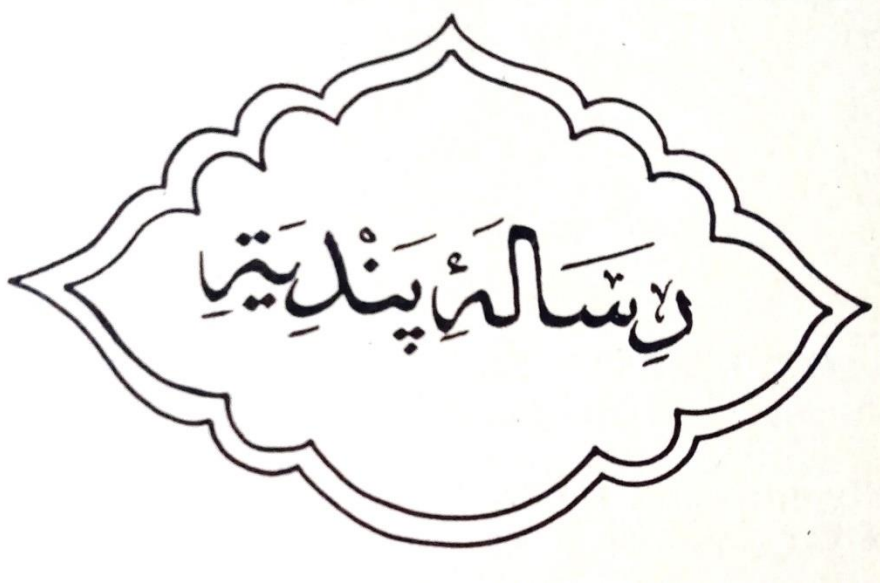 رِسَالَۀِ پَنْدِيَۀِ